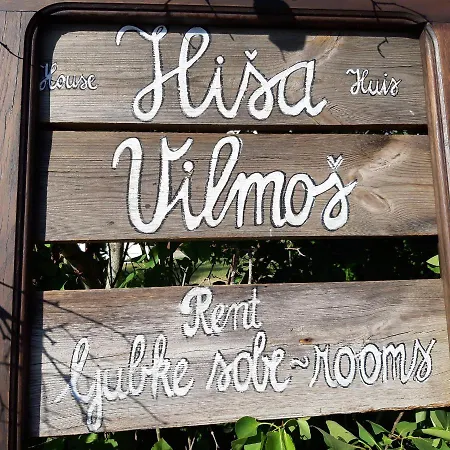 House Hiša Huis
Vilmoš
Rent
Ljubke sobe~rooms